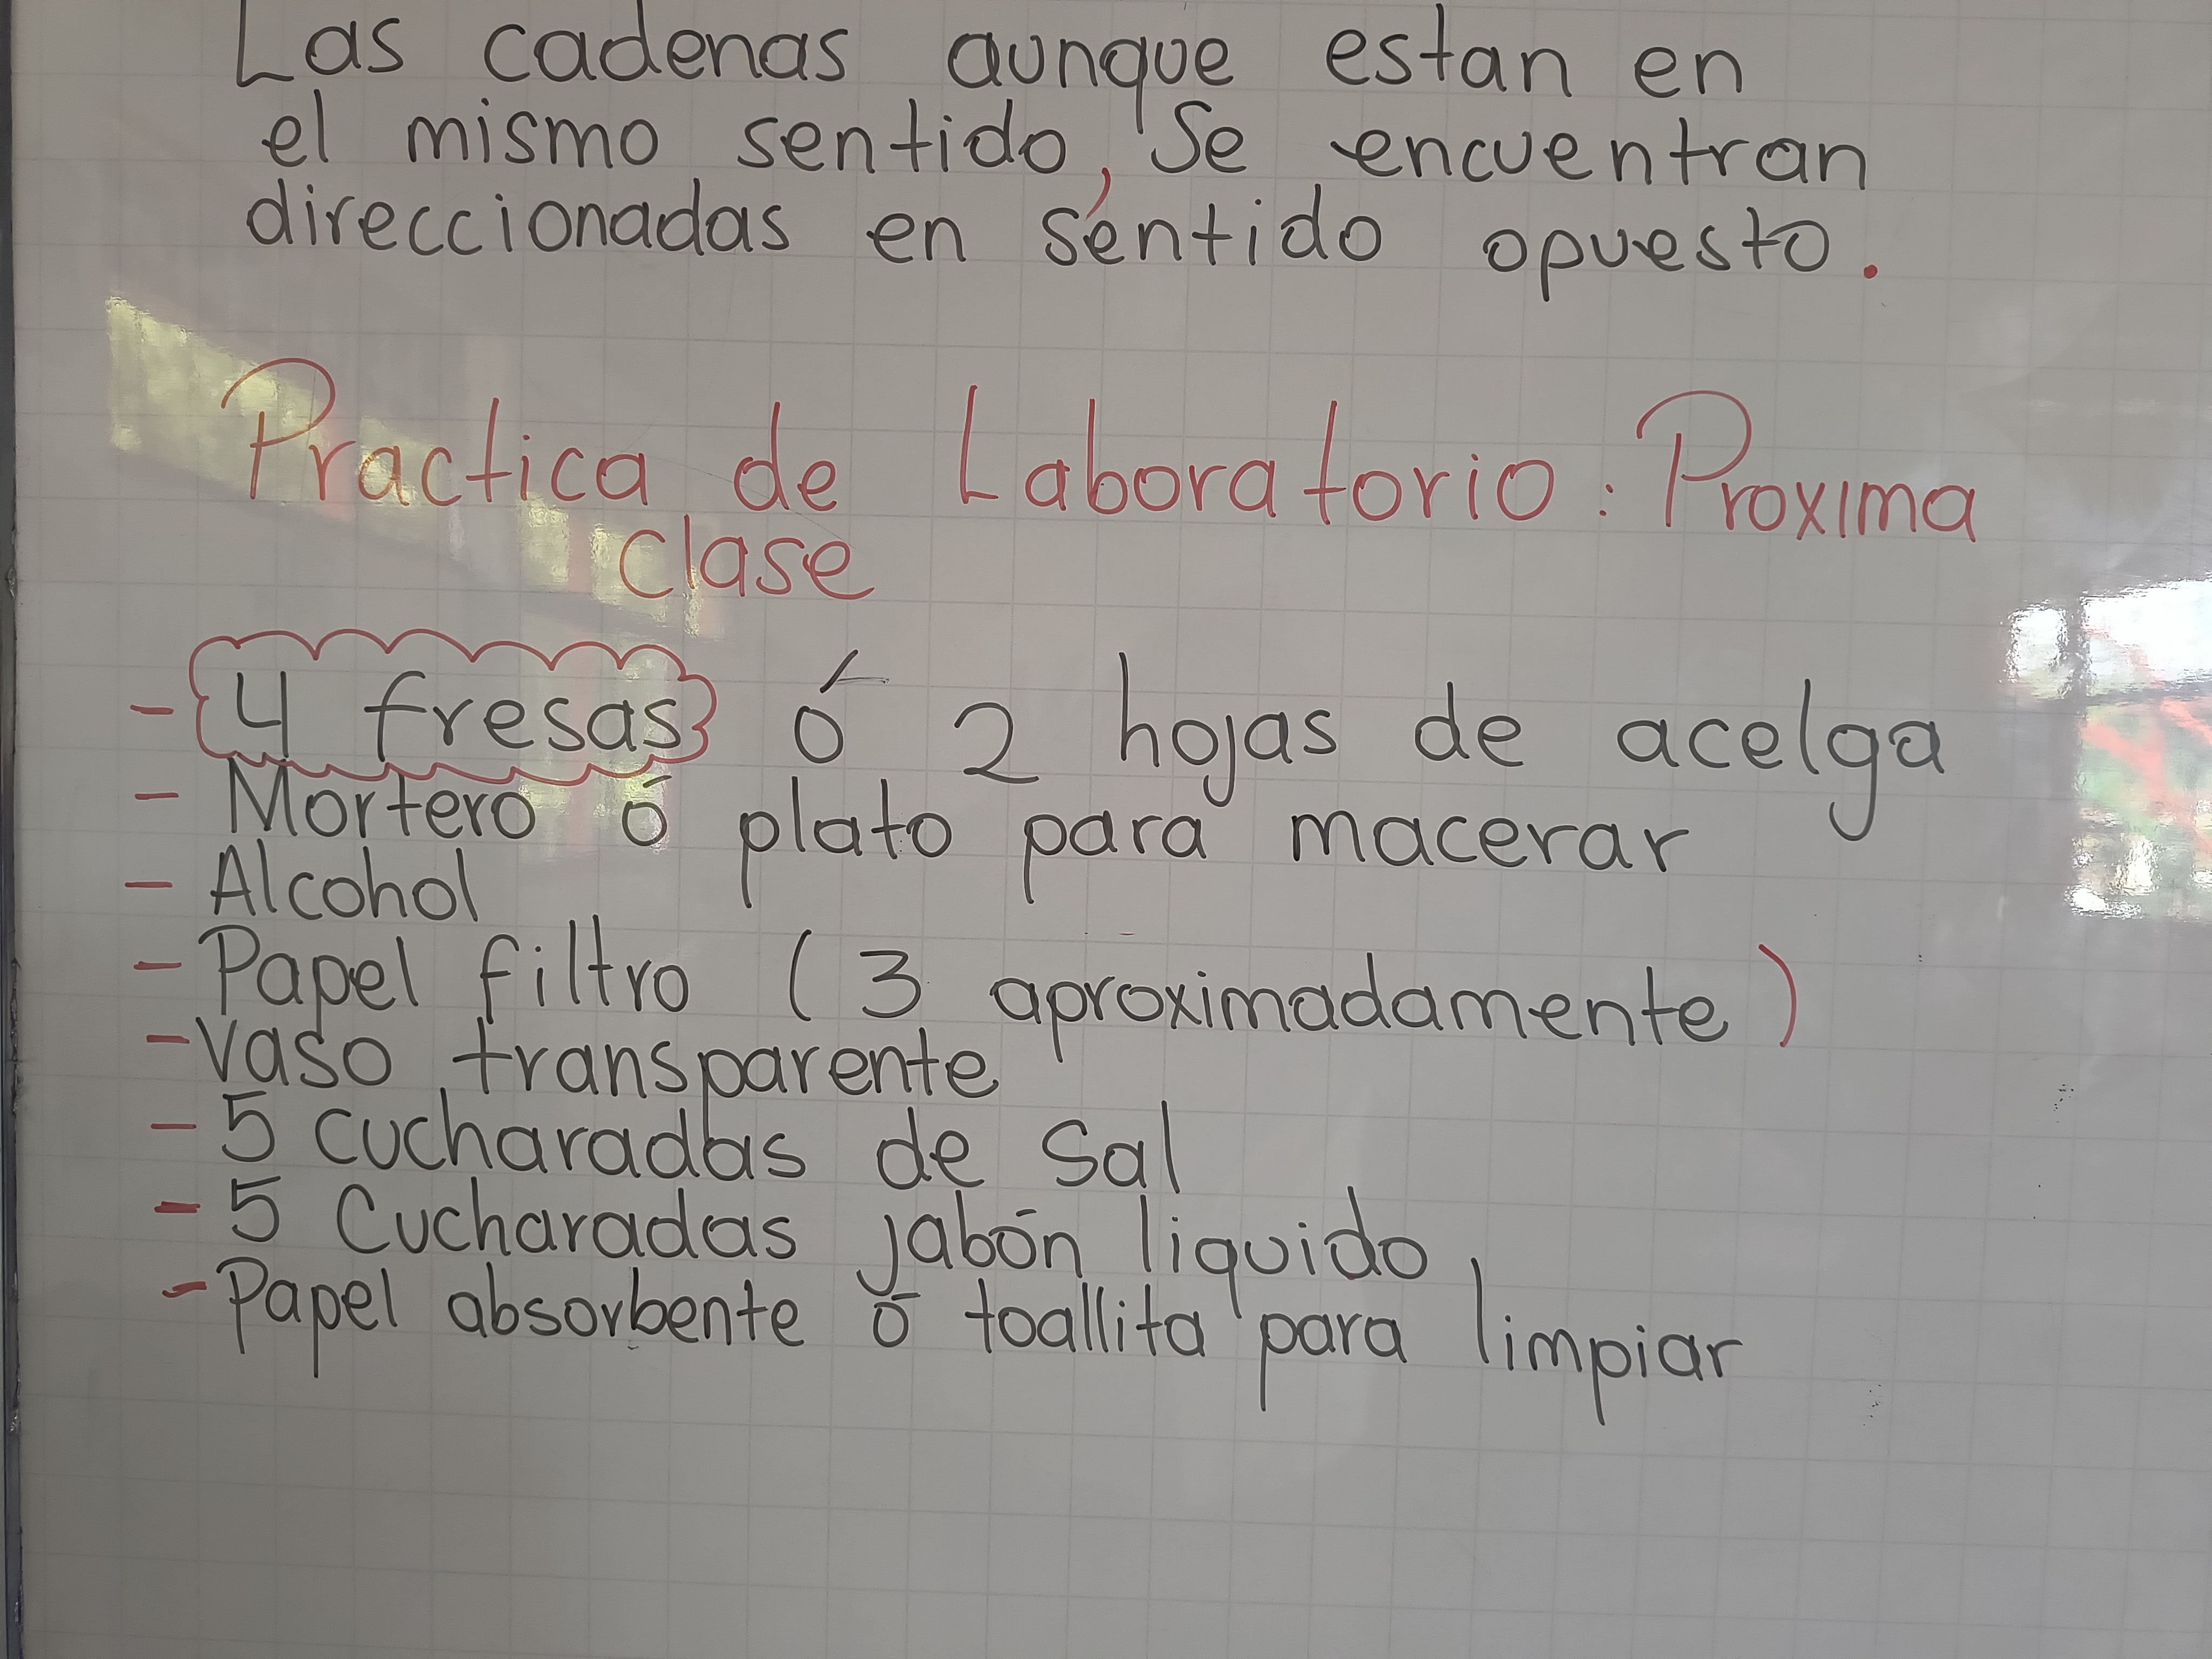 Las cadenas aunque estan en
el mismo sentido, Se encuentran
direccionadas en sentido opuesto.
Practica de Laboratorio: Proxima
clase
- 4 fresas ó 2 hojas de acelga
- Mortero ó plato para macerar
- Alcohol
- Papel filtro (3 aproximadamente)
- Vaso transparente
- 5 cucharadas de Sal
- 5 Cucharadas jabón liquido
- Papel absorbente ó toallita para limpiar